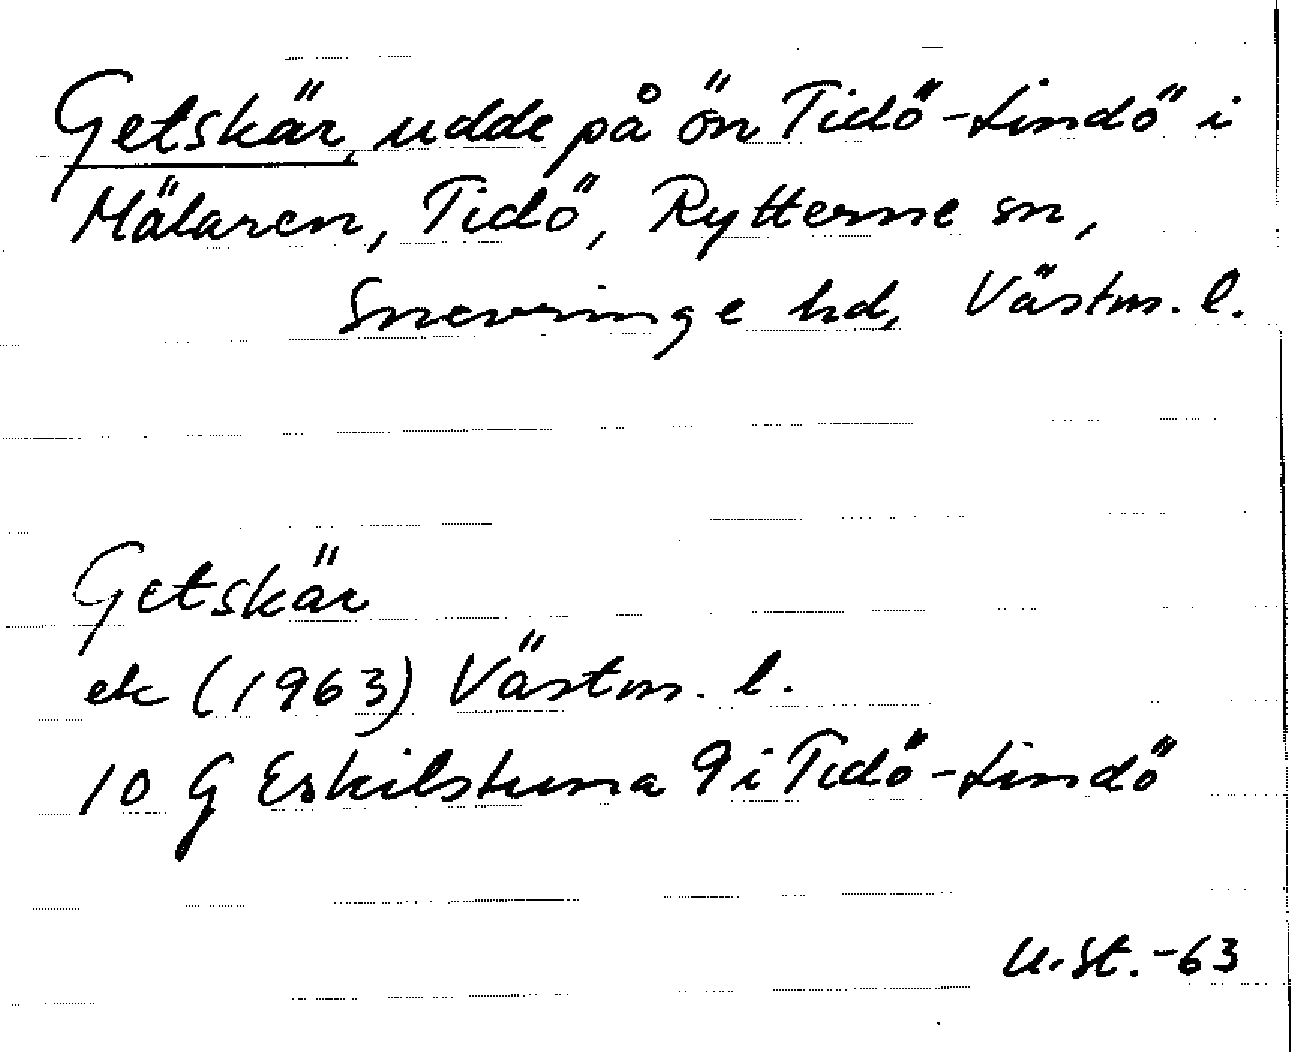 Getskär, udde på ön Tidö-Lindö i
Mälaren, Tidö, Rytterne sn,
Snevringe hd, Västm. l.
Getskär
ek (1963) Västm. l.
10 G Eskilstuna 9 i Tidö-Lindö
U. St. -63